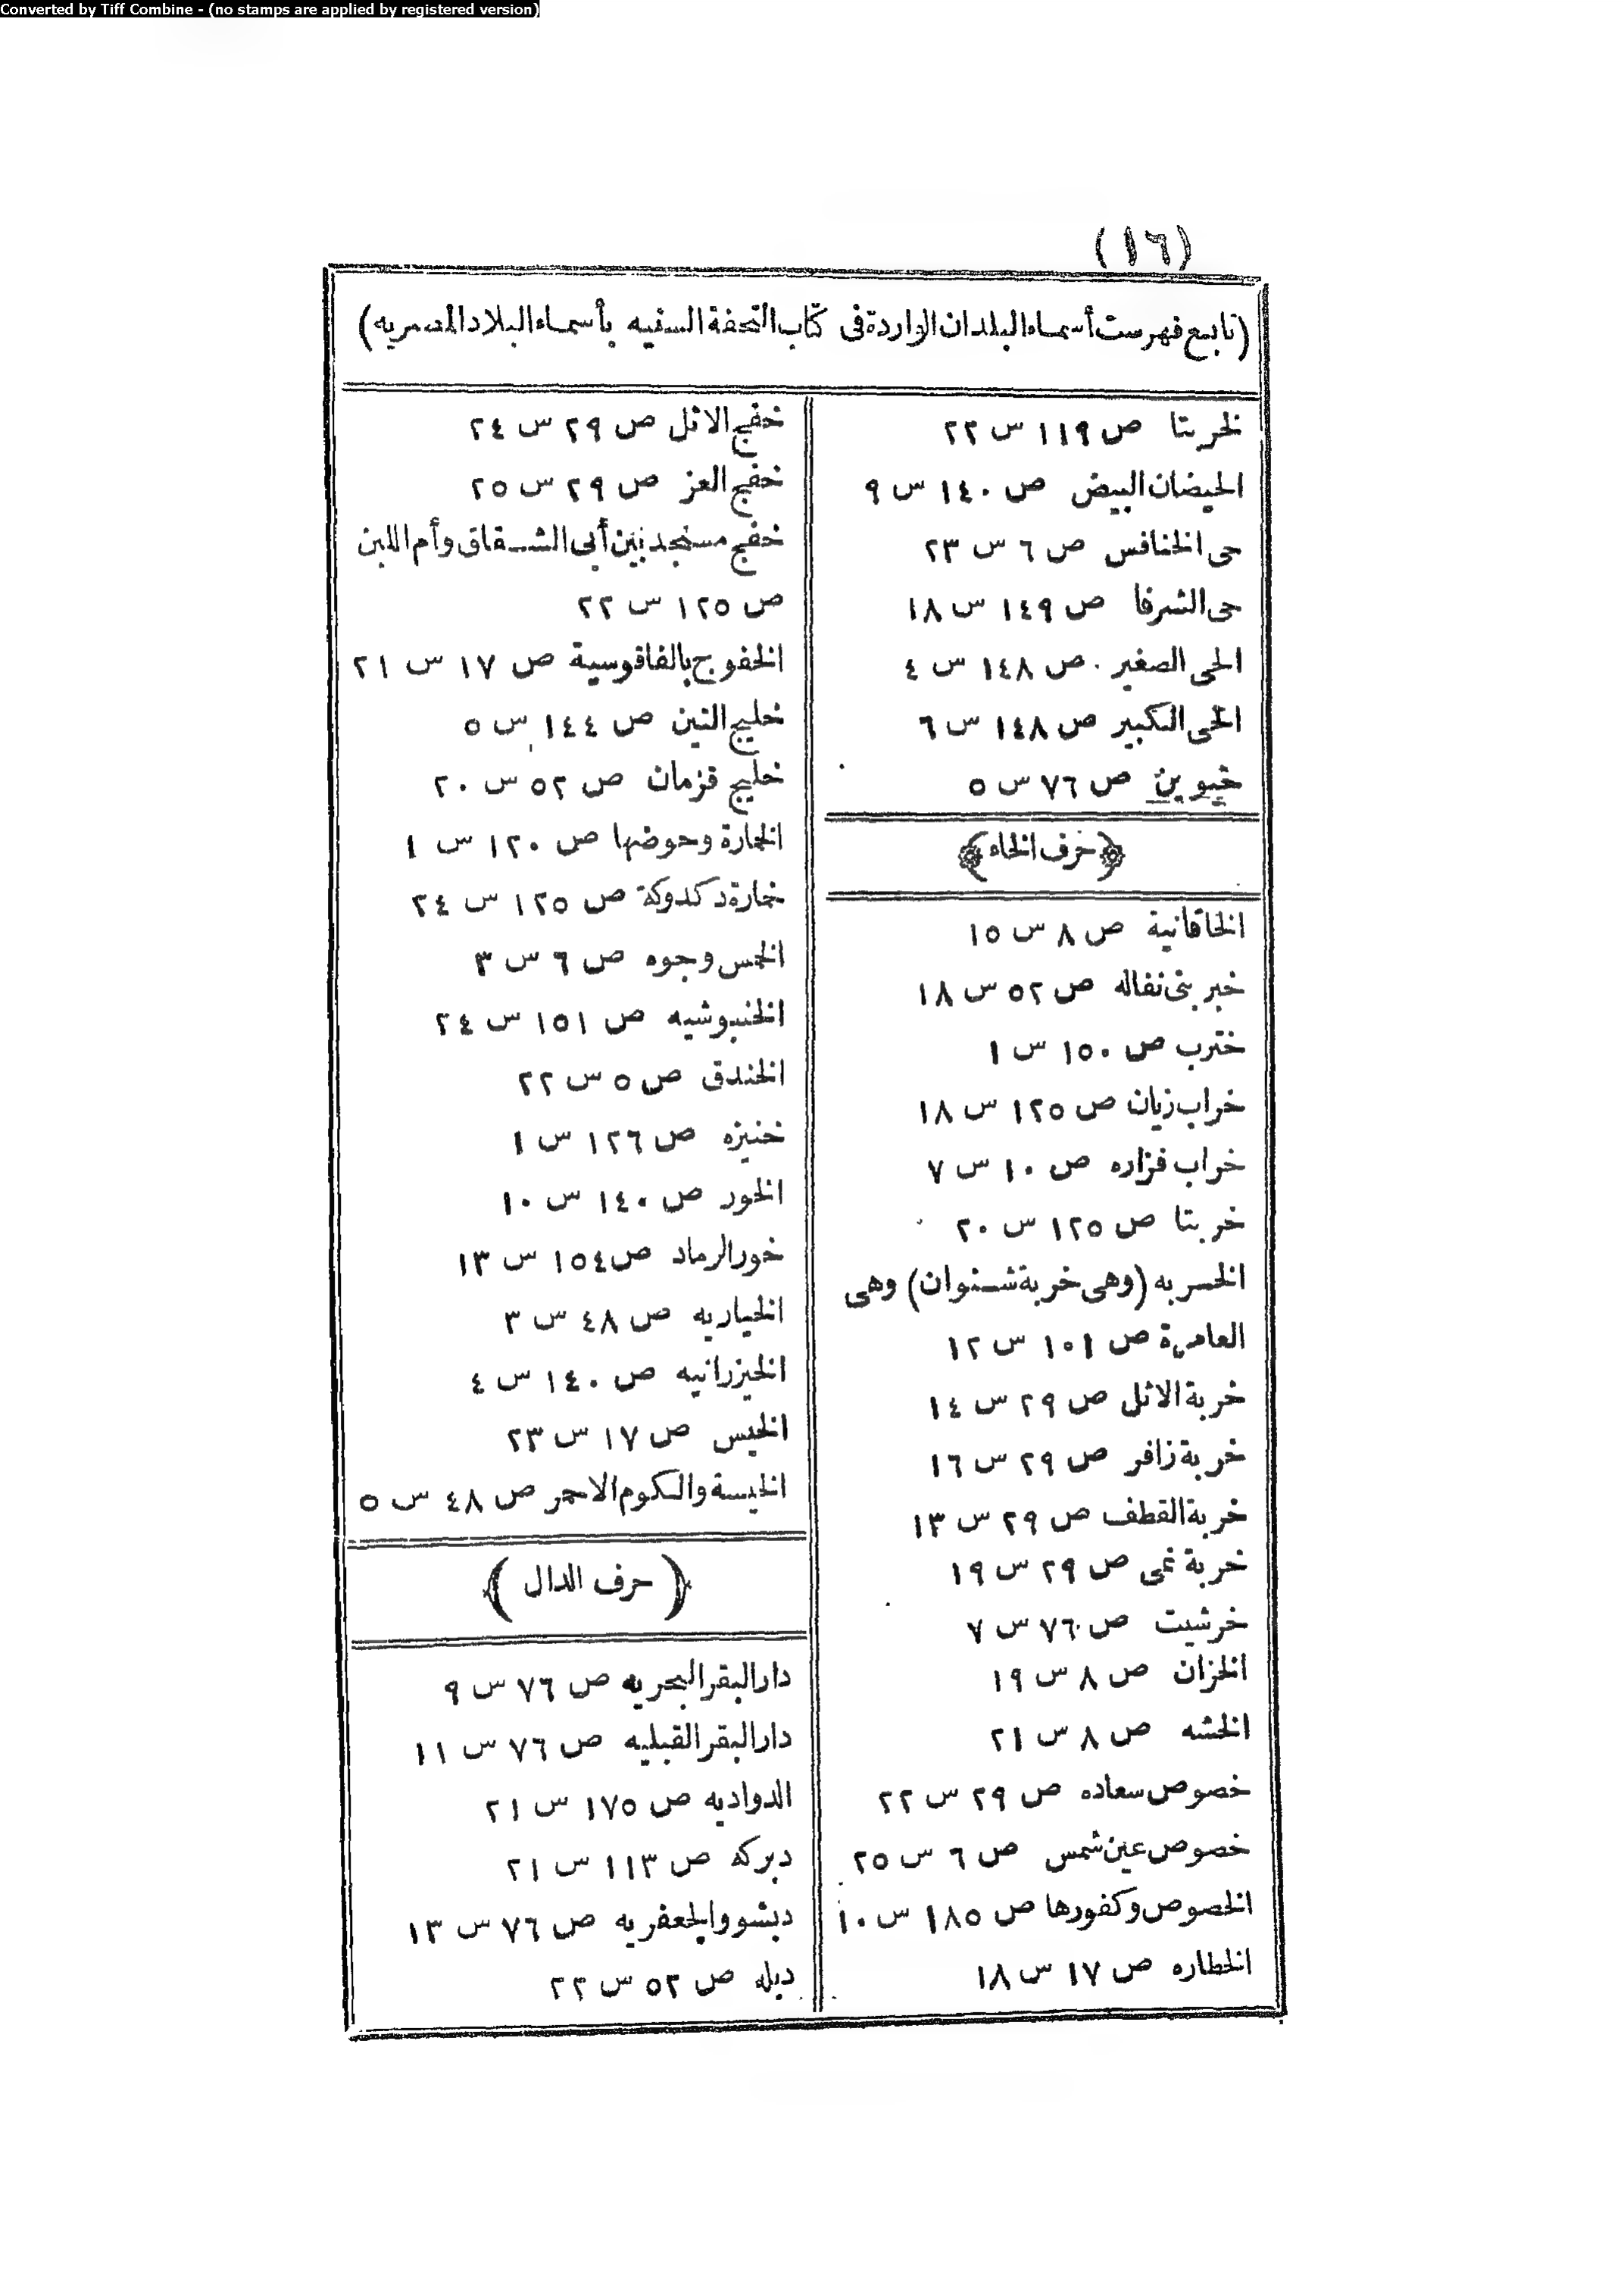 Converted by Tiff Combine - (no stamps are applied by registered version)
(١٦)
(تابع فهرست أسماء البلدان الواردة فى كتاب التحفة السنيه بأسماء البلاد المصريه)
لخربتا ص ١١٩ س ٢٢
الحيضان البيض ص ١٤٠ س ٩
حى الخنافس ص ٦ س ٢٣
حى الشرفا ص ١٤٩ س ١٨
الحى الصغير ص ١٤٨ س ٤
الحى الكبير ص ١٤٨ س ٦
ص ٧٦ س ٥
حرف الخاء
الخاقانية ص ٨ س ١٥
خبر بنى نفاله ص ٥٢ س ١٨
خترب ص ١٥٠ س ١
خراب زيان ص ١٢٥ س ١٨
خراب فزاره ص ١٠ س ٧
خربتا ص ١٢٥ س ٢٠
الخسربه (وهى خربة شنوان) وهى
العامرة ص ١٠١ س ١٢
خربة الاثل ص ٢٩ س ١٤
خربة زافر ص ٢٩ س ١٦
خربة القطف ص ٢٩ س ١٣
خربة نمى ص ٢٩ س ١٩
خرشيت ص ٧٦ س ٧
الخزان ص ٨ س ١٩
الخشه ص ٨ س ٢١
خصوص سعاده ص ٢٩ س ٢٢
خصوص عين شمس ص ٦ س ٢٥
الخصوص وكفورها ص ١٨٥ س ١٠
الخطاره ص ١٧ س ١٨
خفج الاثل ص ٢٩ س ٢٤
خفج العز ص ٢٩ س ٢٥
خفج مستجد بين أبى الشقاق وأم اللبن
ص ١٢٥ س ٢٢
الخفوج بالفاقوسية ص ١٧ س ٢١
خليج التين ص ١٤٤ س ٥
خليج قزمان ص ٥٢ س ٢٠
الخمارة وحوضها ص ١٢٠ س ١
خمارة دكدوكة ص ١٢٥ س ٢٤
الخمس وجوه ص ٦ س ٣
الخنبوشيه ص ١٥١ س ٢٤
الخندق ص ٥ س ٢٢
خنيزه ص ١٢٦ س ١
الخور ص ١٤٠ س ١٠
خور الرماد ص ١٥٤ س ١٣
الخياريه ص ٤٨ س ٣
الخيزرانيه ص ١٤٠ س ٤
الخيس ص ١٧ س ٢٣
الخيسة والكوم الاحمر ص ٤٨ س ٥
( حرف الدال )
دار البقر البحريه ص ٧٦ س ٩
دار البقر القبليه ص ٧٦ س ١١
الدواديه ص ١٧٥ س ٢١
دبركه ص ١١٣ س ٢١
دبشو والجعفريه ص ٧٦ س ١٣
دبله ص ٥٢ س ٢٢